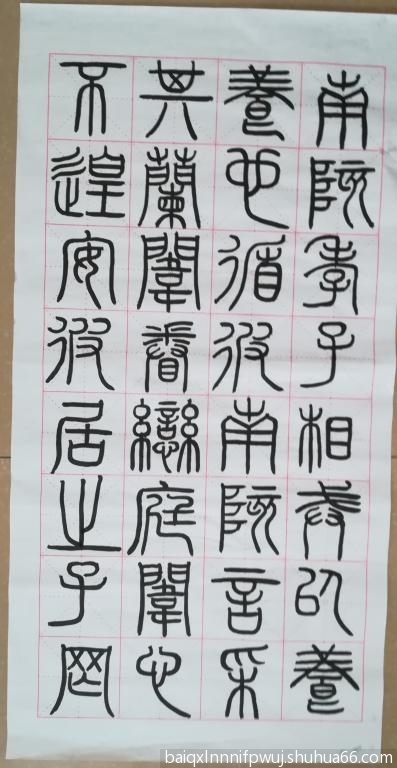 南陔孝子相戒以養
養也循彼南陔言采
其蘭闈眷戀庭闈心
不遑安彼居之子罔
baiqxlnnnifpwuj.shuhua66.com